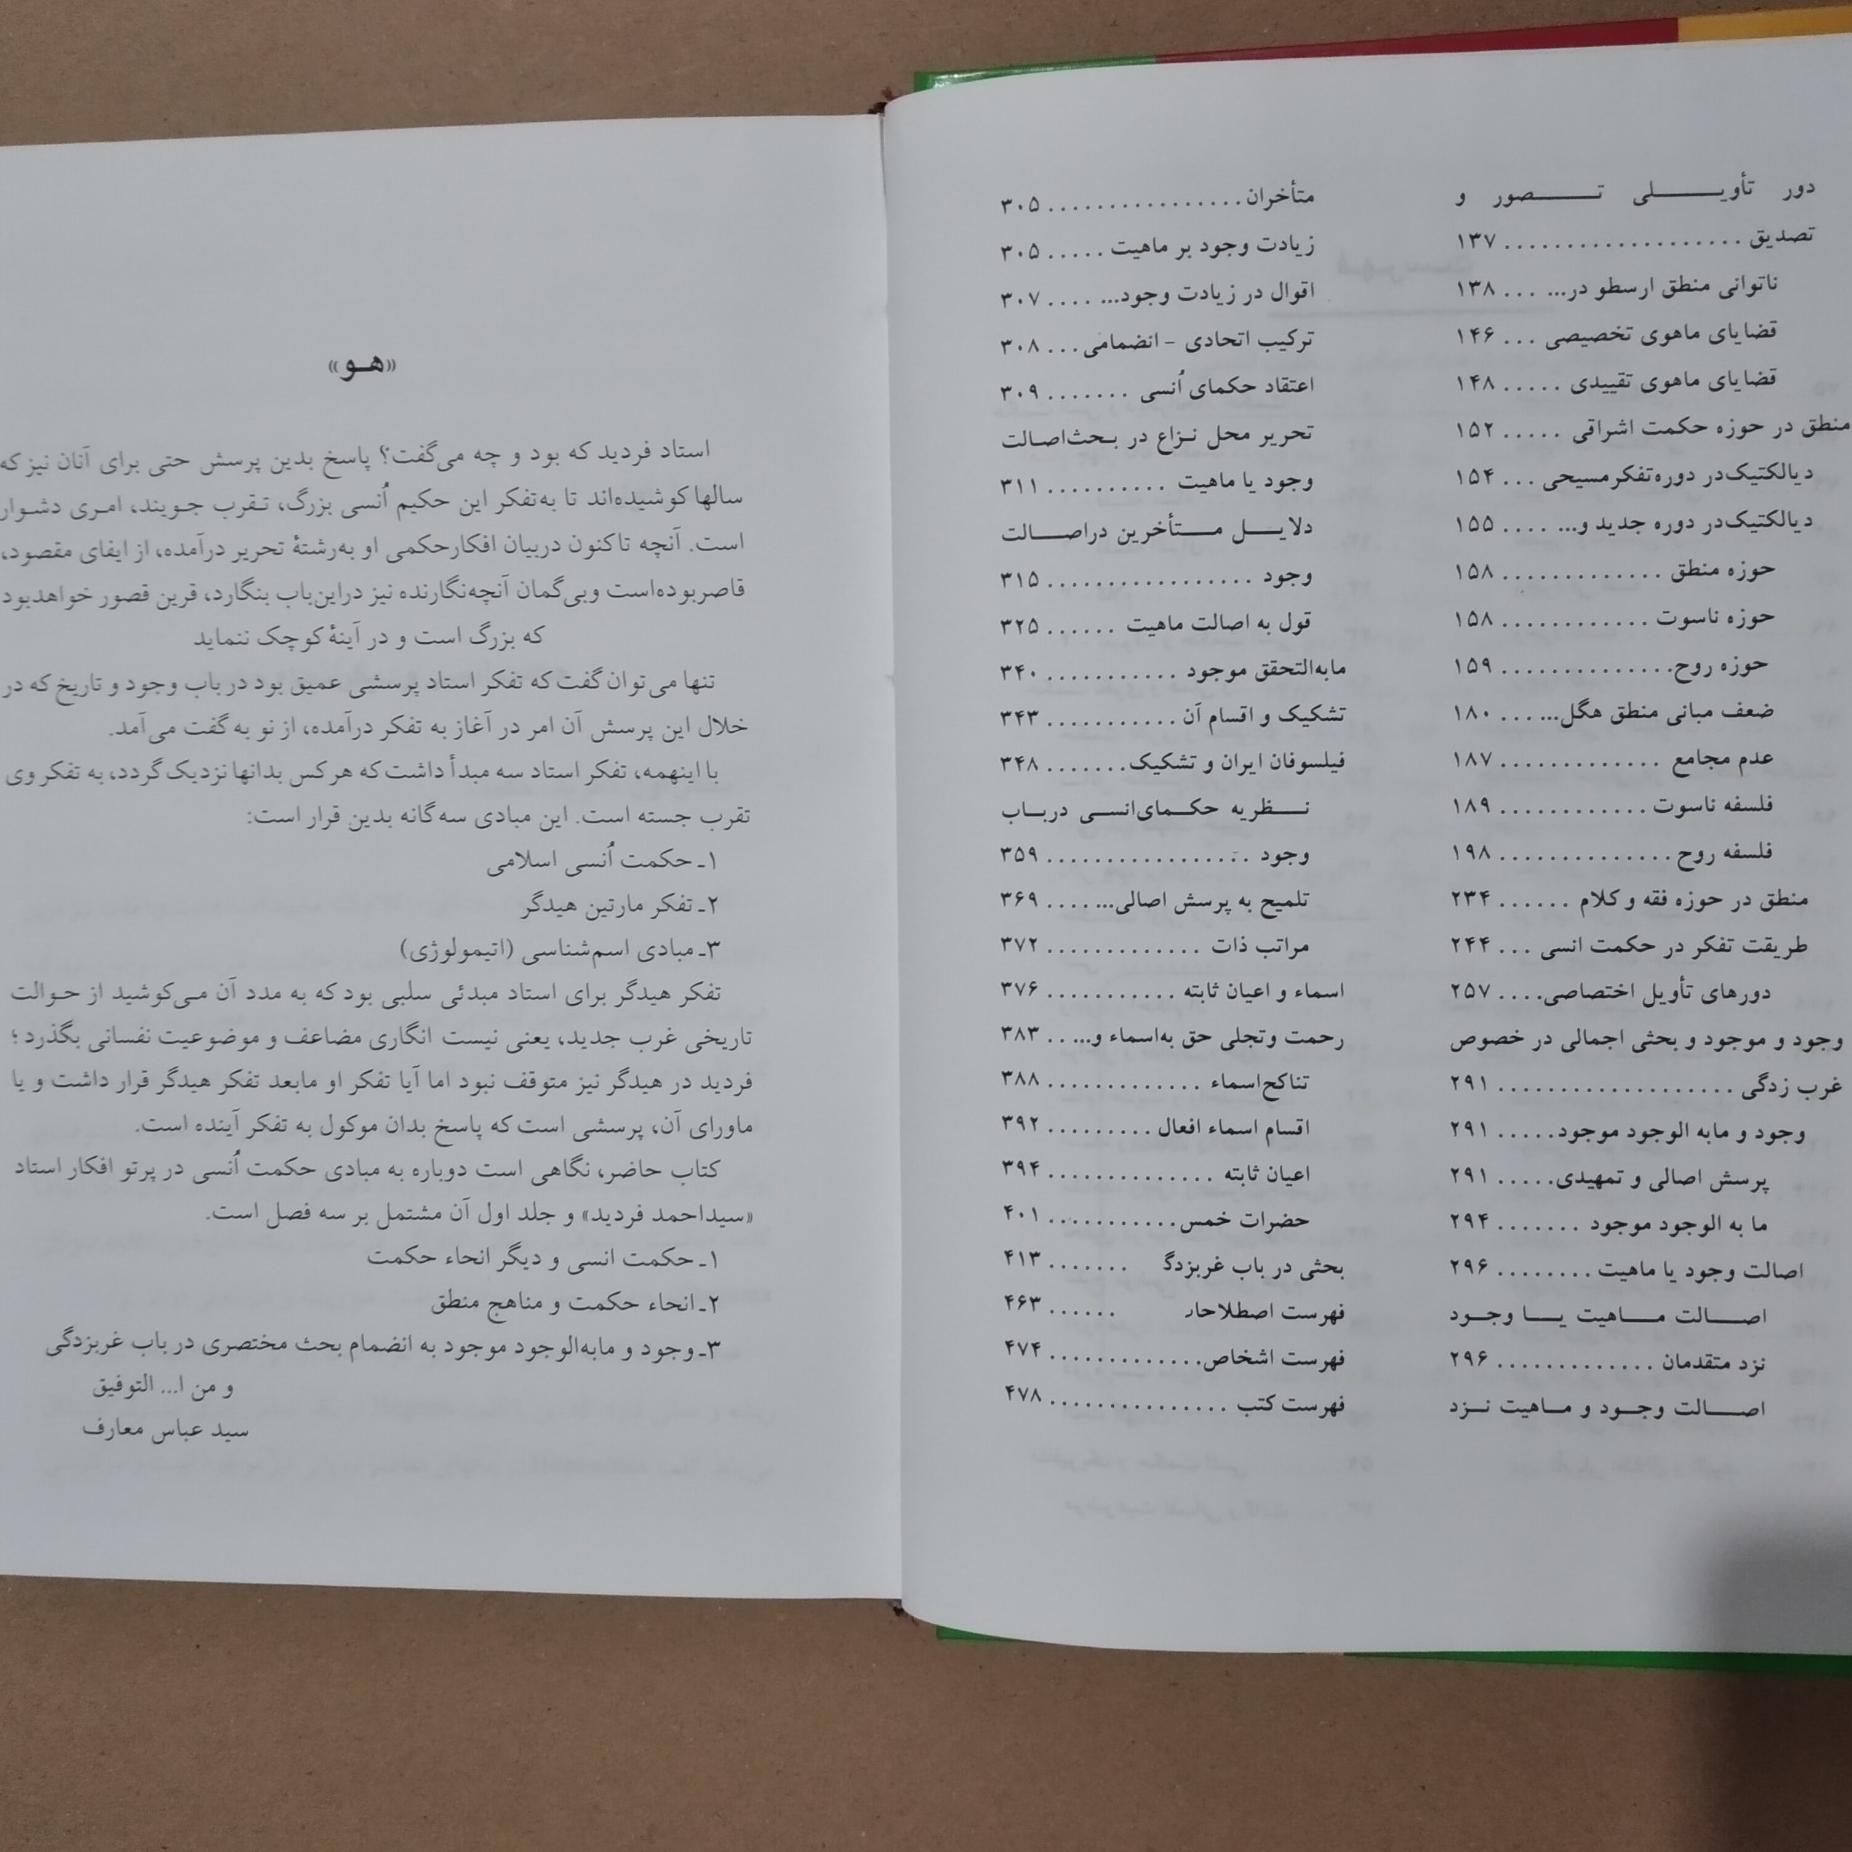 دور تأویلی تصور و
تصدیق ................... ۱۳۷
ناتوانی منطق ارسطو در... ... ۱۳۸
قضایای ماهوی تخصیصی ... ۱۴۶
قضایای ماهوی تقییدی ..... ۱۴۸
منطق در حوزه حکمت اشراقی ..... ۱۵۲
دیالکتیک‌در دوره‌تفکرمسیحی ... ۱۵۴
دیالکتیک‌در دوره جدید و... .... ۱۵۵
حوزه منطق ............. ۱۵۸
حوزه ناسوت ............ ۱۵۸
حوزه روح............... ۱۵۹
ضعف مبانی منطق هگل... ... ۱۸۰
عدم مجامع ............. ۱۸۷
فلسفه ناسوت ............ ۱۸۹
فلسفه روح .............. ۱۹۸
منطق در حوزه فقه و کلام ...... ۲۳۴
طریقت تفکر در حکمت انسی ... ۲۴۴
دورهای تأویل اختصاصی.... ۲۵۷
وجود و موجود و بحثی اجمالی در خصوص
غرب زدگی ................... ۲۹۱
وجود و مابه الوجود موجود..... ۲۹۱
پرسش اصالی و تمهیدی..... ۲۹۱
ما به الوجود موجود ....... ۲۹۴
اصالت وجود یا ماهیت ........ ۲۹۶
اصالت ماهیت یا وجود
نزد متقدمان ............. ۲۹۶
اصالت وجود و ماهیت نزد
متأخران................ ۳۰۵
زیادت وجود بر ماهیت ..... ۳۰۵
اقوال در زیادت وجود... .... ۳۰۷
ترکیب اتحادی - انضمامی... ۳۰۸
اعتقاد حکمای اُنسی ....... ۳۰۹
تحریر محل نزاع در بحث‌اصالت
وجود یا ماهیت .......... ۳۱۱
دلایل متأخرین دراصالت
وجود ................. ۳۱۵
قول به اصالت ماهیت ...... ۳۲۵
مابه‌التحقق موجود ........... ۳۴۰
تشکیک و اقسام آن ........... ۳۴۳
فیلسوفان ایران و تشکیک....... ۳۴۸
نظریه حکمای‌انسی درباب
وجود ................. ۳۵۹
تلمیح به پرسش اصالی... .... ۳۶۹
مراتب ذات ............. ۳۷۲
اسماء و اعیان ثابته ........... ۳۷۶
رحمت وتجلی حق به‌اسماء و... .. ۳۸۳
تناکح‌اسماء ............. ۳۸۸
اقسام اسماء افعال ......... ۳۹۲
اعیان ثابته .............. ۳۹۴
حضرات خمس........... ۴۰۱
بحثی در باب غربزدگ ....... ۴۱۳
فهرست اصطلاحار ...... ۴۶۳
فهرست اشخاص............. ۴۷۴
فهرست کتب ............... ۴۷۸
«هو»
استاد فردید که بود و چه می‌گفت؟ پاسخ بدین پرسش حتی برای آنان نیز که
سالها کوشیده‌اند تا به‌تفکر این حکیم اُنسی بزرگ، تقرب جویند، امری دشوار
است. آنچه تاکنون دربیان افکارحکمی او به‌رشتهٔ تحریر درآمده، از ایفای مقصود،
قاصربوده‌است وبی‌گمان آنچه‌نگارنده نیز دراین‌باب بنگارد، قرین قصور خواهدبود
که بزرگ است و در آینهٔ کوچک ننماید
تنها می‌توان گفت که تفکر استاد پرسشی عمیق بود در باب وجود و تاریخ که در
خلال این پرسش آن امر در آغاز به تفکر درآمده، از نو به گفت می‌آمد.
با اینهمه، تفکر استاد سه مبدأ داشت که هر کس بدانها نزدیک گردد، به تفکر وی
تقرب جسته است. این مبادی سه‌گانه بدین قرار است:
۱ـ حکمت اُنسی اسلامی
۲ـ تفکر مارتین هیدگر
۳ـ مبادی اسم‌شناسی (اتیمولوژی)
تفکر هیدگر برای استاد مبدئی سلبی بود که به مدد آن می‌کوشید از حوالت
تاریخی غرب جدید، یعنی نیست انگاری مضاعف و موضوعیت نفسانی بگذرد ؛
فردید در هیدگر نیز متوقف نبود اما آیا تفکر او مابعد تفکر هیدگر قرار داشت و یا
ماورای آن، پرسشی است که پاسخ بدان موکول به تفکر آینده است.
کتاب حاضر، نگاهی است دوباره به مبادی حکمت اُنسی در پرتو افکار استاد
«سیداحمد فردید» و جلد اول آن مشتمل بر سه فصل است.
۱ـ حکمت انسی و دیگر انحاء حکمت
۲ـ انحاء حکمت و مناهج منطق
۳ـ وجود و مابه‌الوجود موجود به انضمام بحث مختصری در باب غربزدگی
و من ا... التوفیق
سید عباس معارف